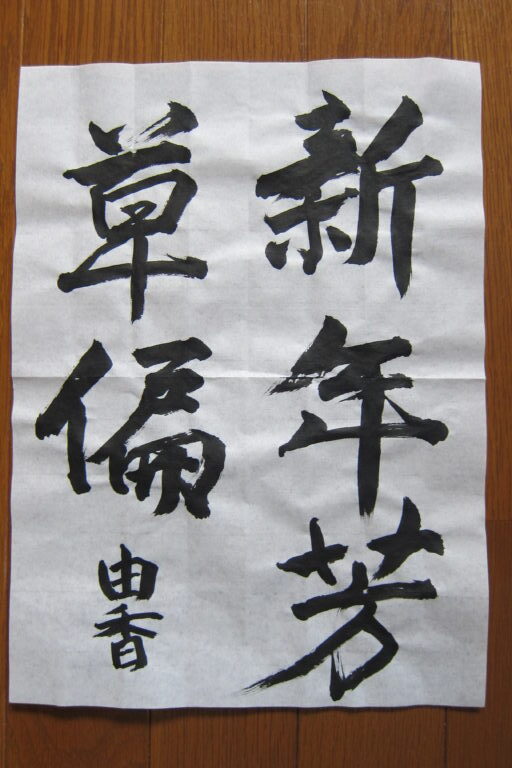 新年芳
草偏
由香